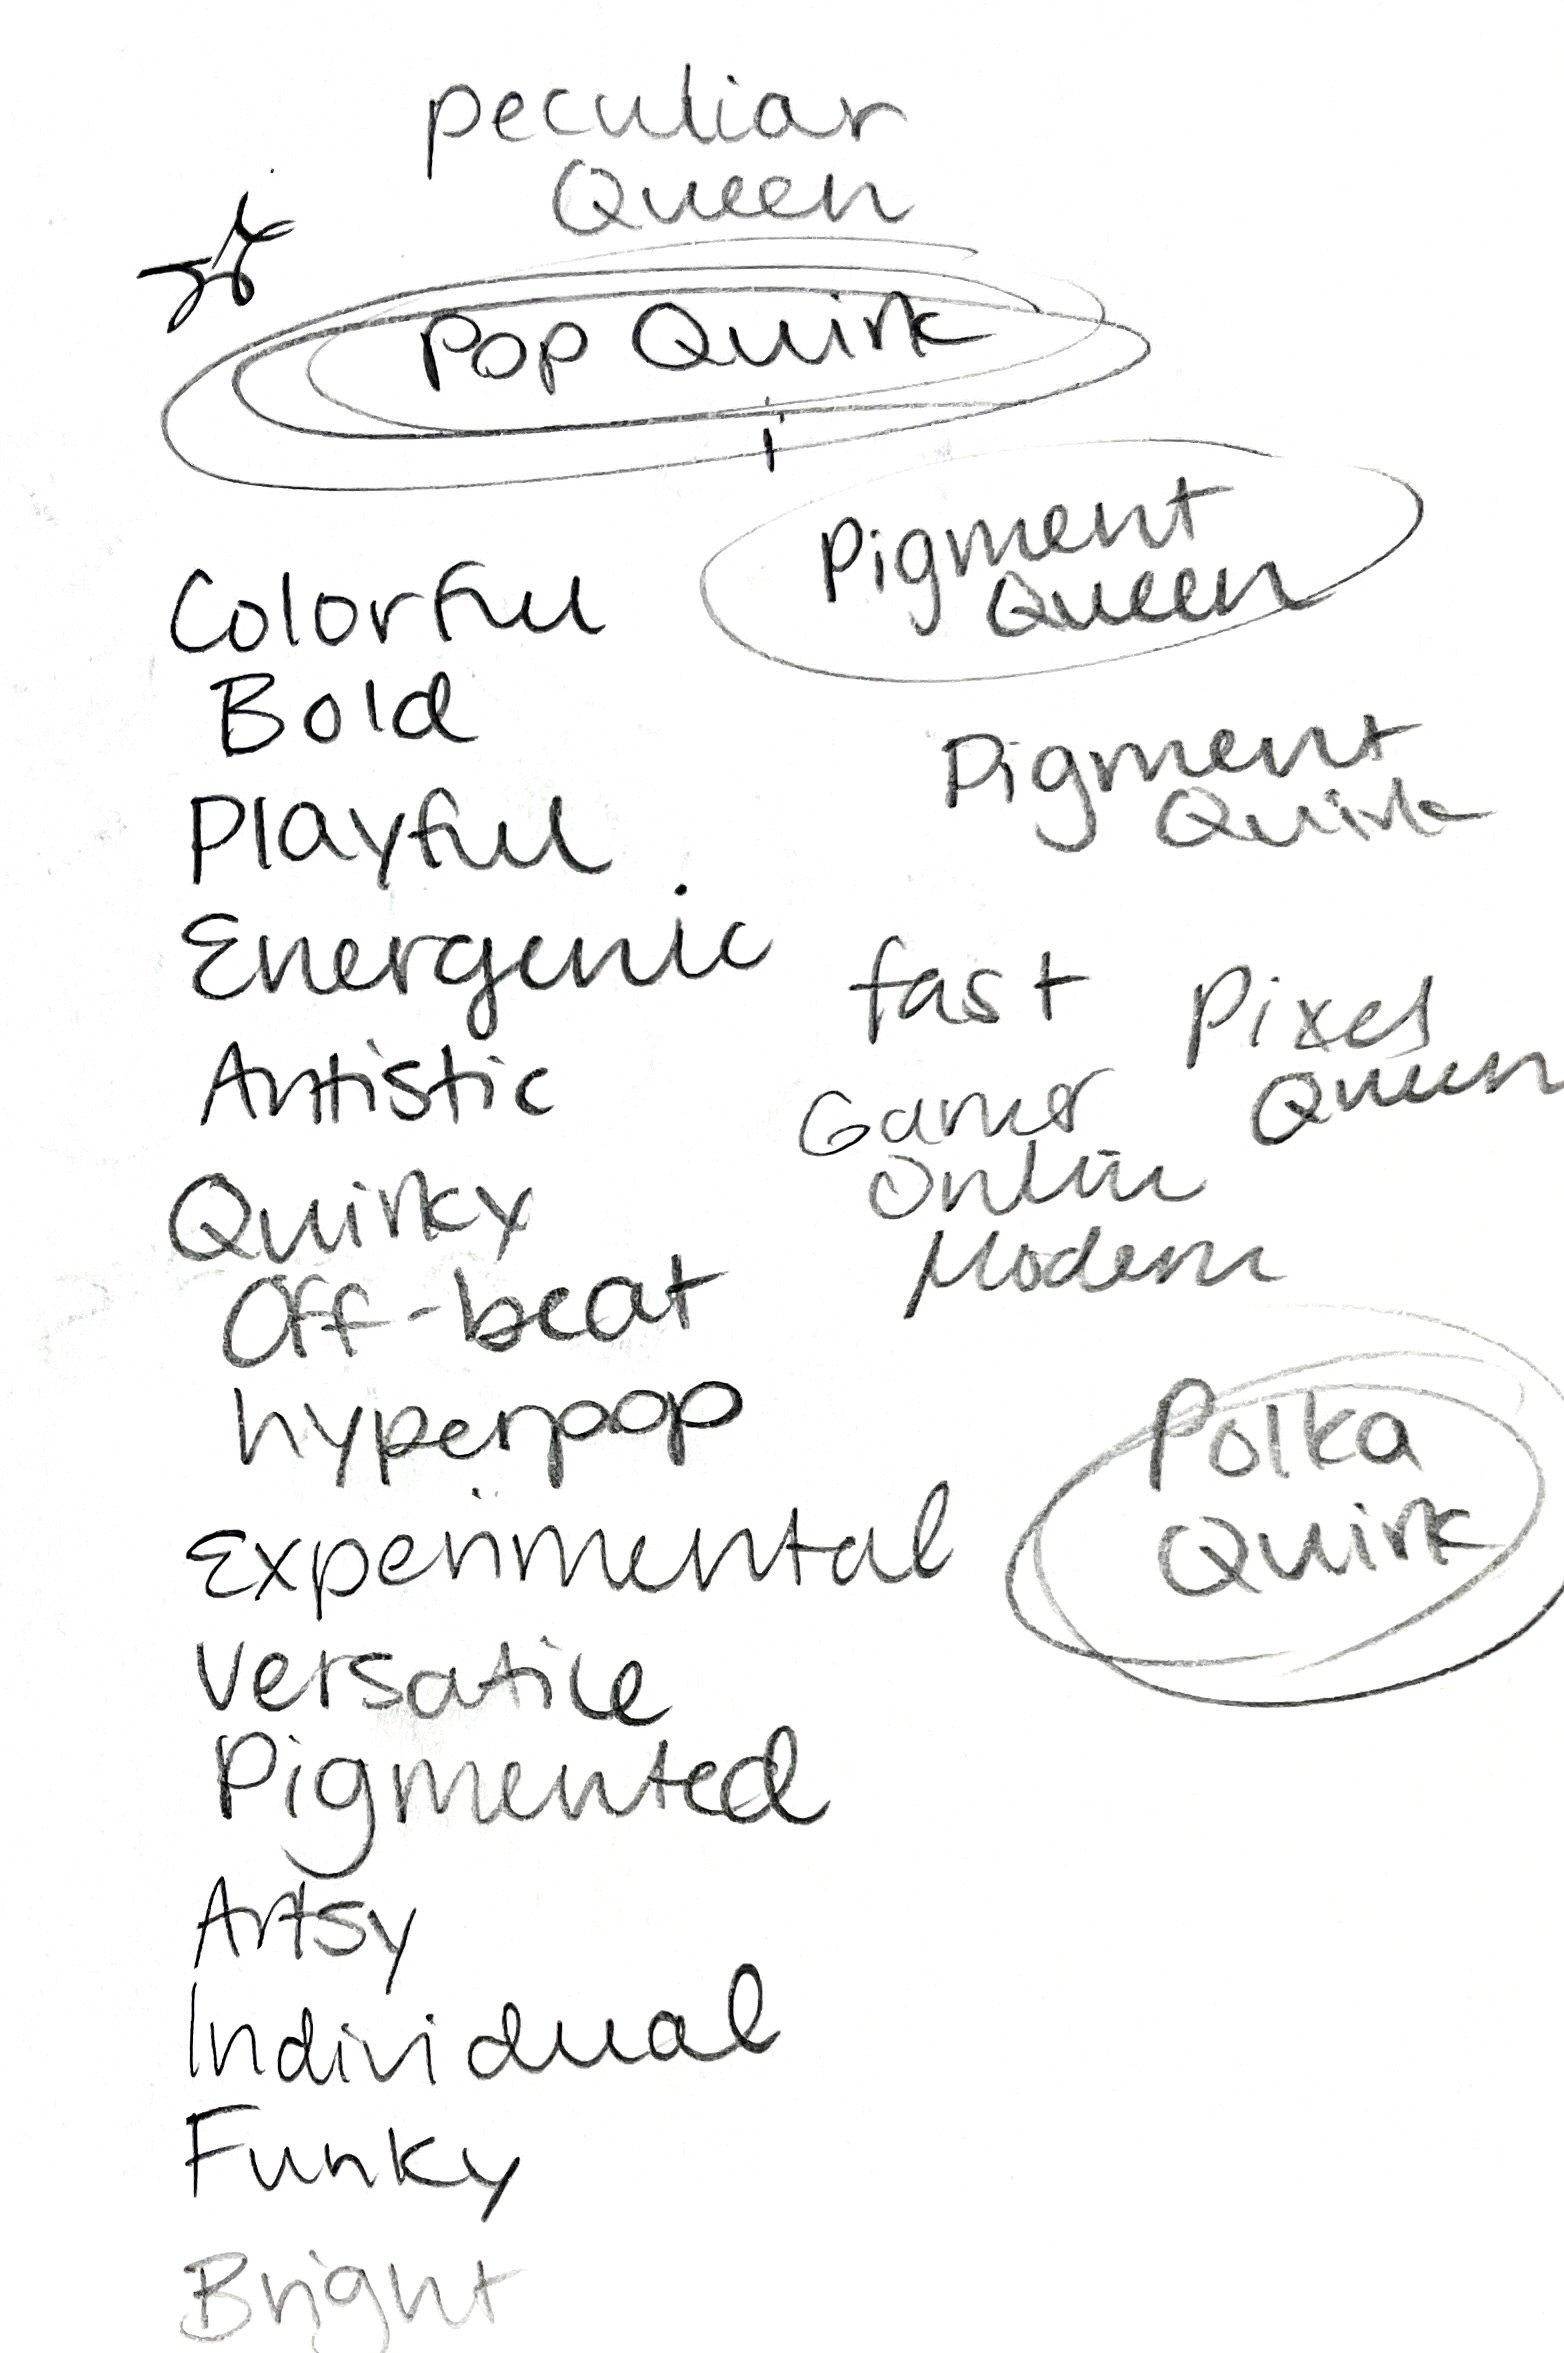 peculiar
Queen
Pop Quirk
Pigment
Queen
Colorful
Bold
Pigment
Quirk
Playful
Energenic
fast
Pixel
Queen
Artistic
Gamer
Online
Quirky
Modern
Off-beat
hyperpop
Polka
Quirk
Experimental
Versatile
Pigmented
Artsy
Individual
Funky
Bright